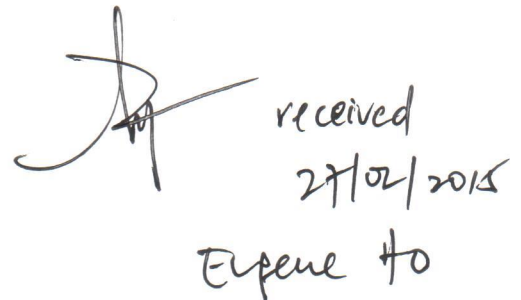 received
27/02/2015
Eugene Ho